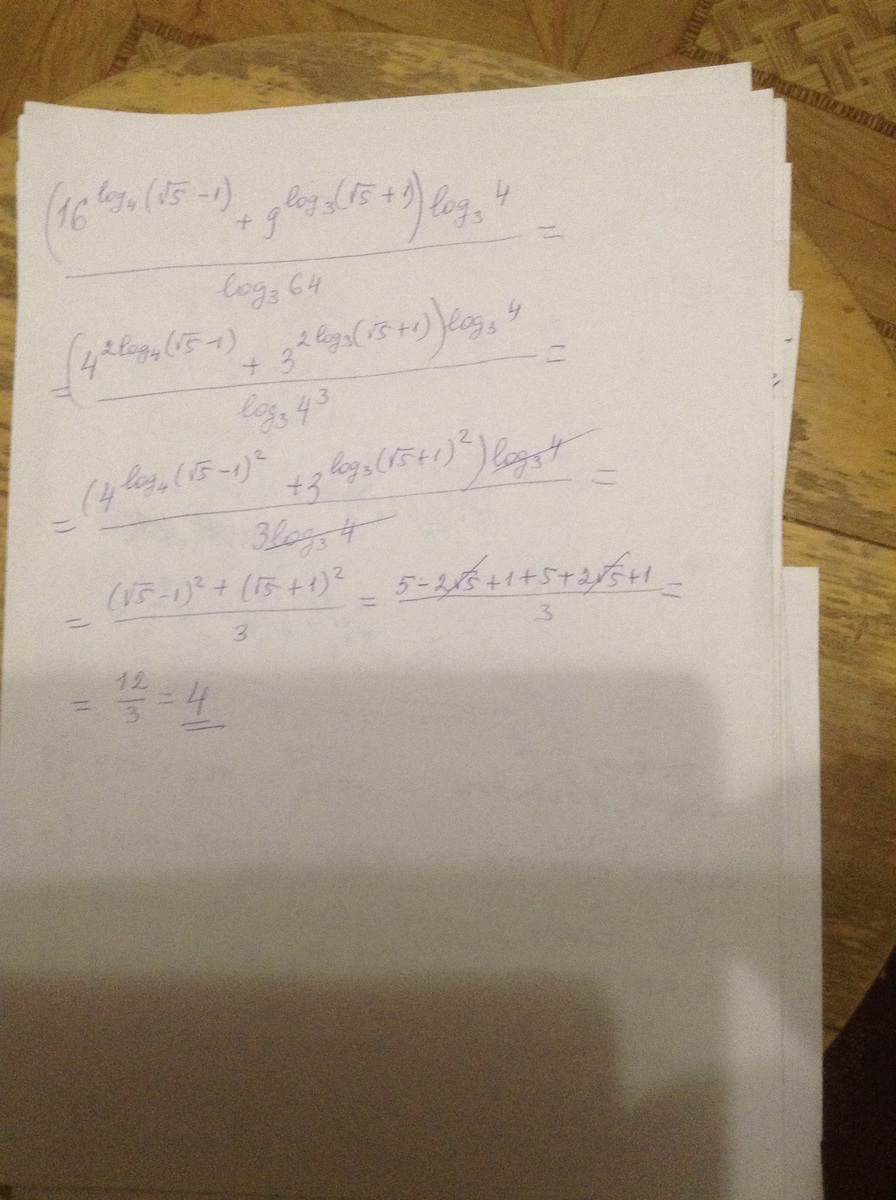 (16^log₄(√5 -1) + 9^log₃(√5 +1)) log₃ 4 / log₃ 64 =
= (4^2log₄(√5 -1) + 3^2log₃(√5 +1)) log₃ 4 / log₃ 4³ =
= (4^log₄(√5 -1)² + 3^log₃(√5 +1)²) log₃ 4 / 3 log₃ 4 =
= (√5 -1)² + (√5 +1)² / 3 = 5 - 2√5 + 1 + 5 + 2√5 + 1 / 3 =
= 12/3 = 4